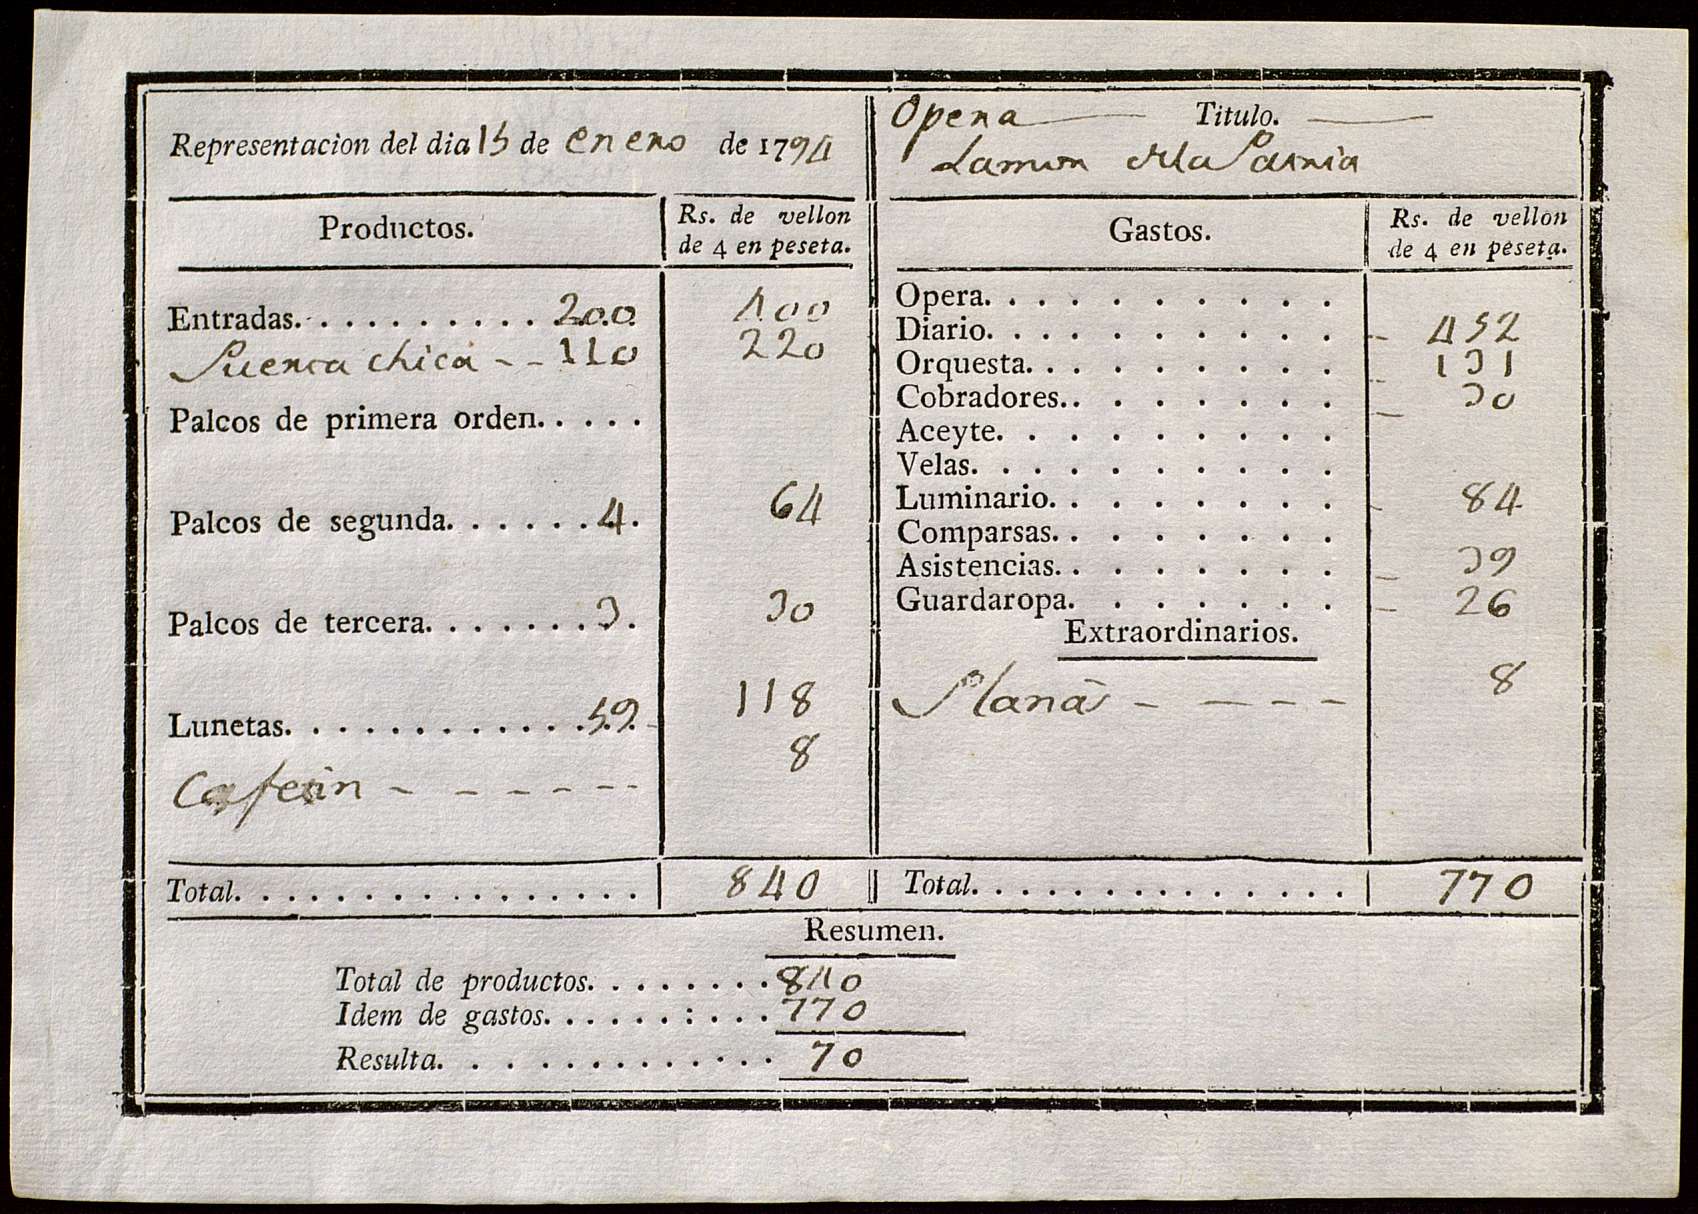 Representacion del dia 15 de enero de 1794
Opera Titulo.
Lamor dela Patria
Productos.
Rs. de vellon
de 4 en peseta.
Entradas. . . . . . . . . . 200 400
Puerta chica - - 110 220
Palcos de primera orden. . . . .
Palcos de segunda. . . . . . 4. 64
Palcos de tercera. . . . . . . 3. 30
Lunetas. . . . . . . . . . . . 59. 118
Cafetin - - - - - - - 8
Total. . . . . . . . . . . . . . . . 840
Gastos.
Rs. de vellon
de 4 en peseta.
Opera. . . . . . . . . .
Diario. . . . . . . . . . 452
Orquesta. . . . . . . . . 131
Cobradores. . . . . . . . 30
Aceyte. . . . . . . . .
Velas. . . . . . . . . .
Luminario. . . . . . . . 84
Comparsas. . . . . . . .
Asistencias. . . . . . . . 39
Guardaropa. . . . . . . 26
Extraordinarios.
- - - - 8
Total. . . . . . . . . . . . . . . 770
Resumen.
Total de productos. . . . . . . . 840
Idem de gastos. . . . . . : . . . 770
Resulta. . . . . . . . . . . . . 70